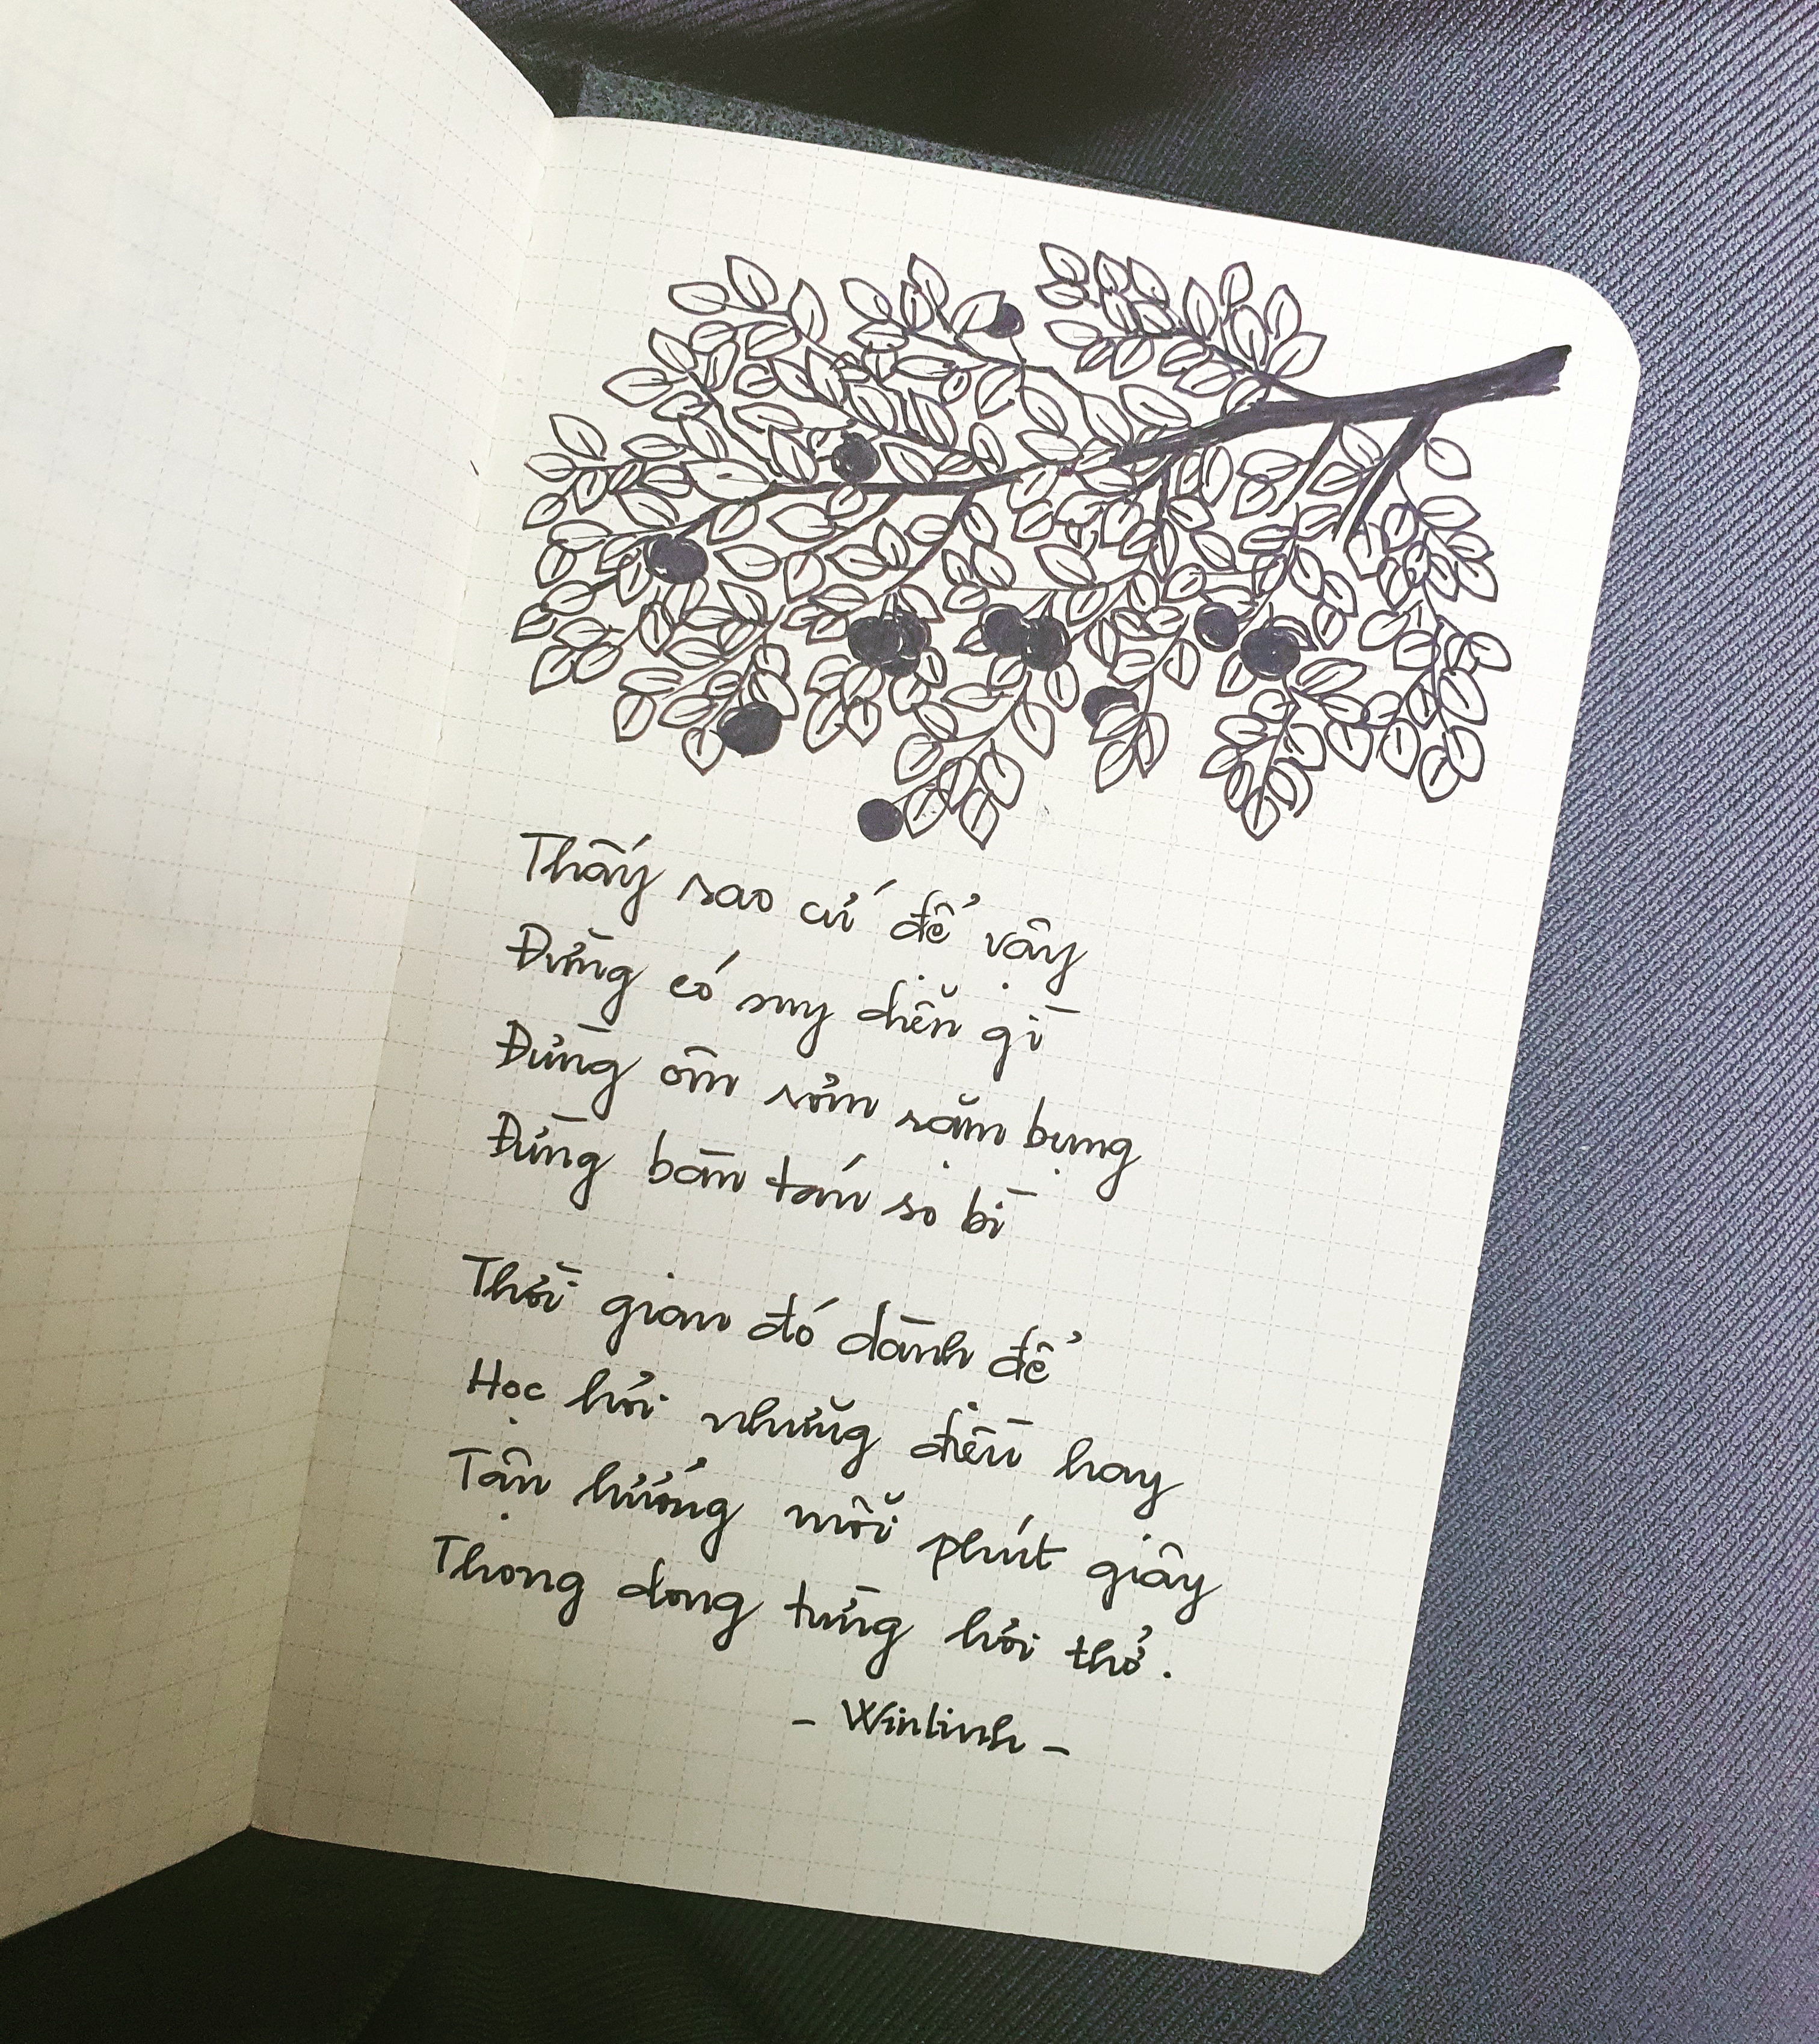 Thấy sao cứ để vậy
Đừng có suy diễn gì
Đừng ôm rơm rặm bụng
Đừng bàn tán so bì
Thời gian đó dành để
Học hỏi những điều hay
Tận hưởng mỗi phút giây
Thong dong từng hơi thở.
- Winlinh -